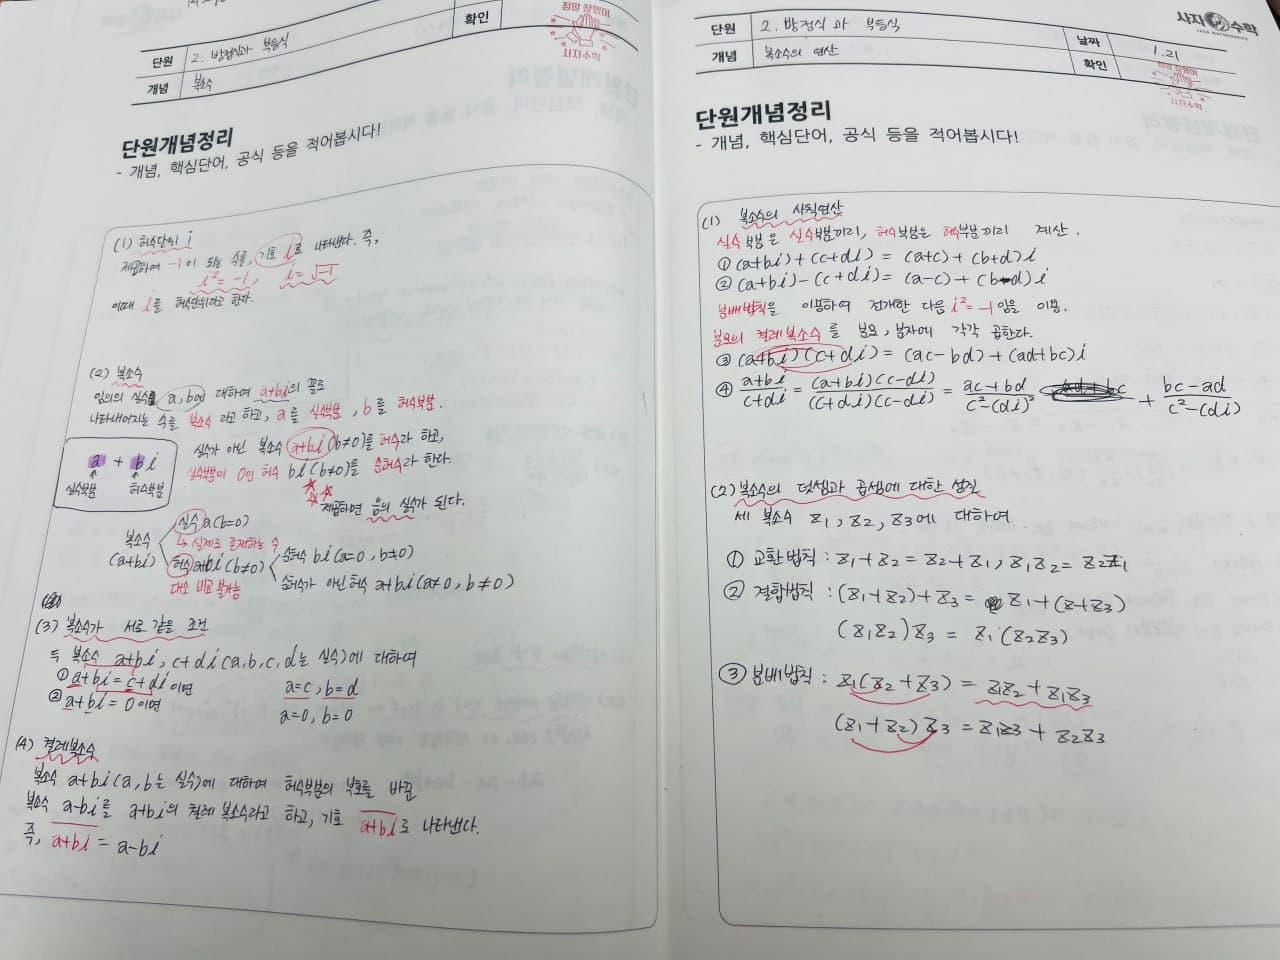 단원 2. 방정식과 부등식
개념 복소수
확인
참 잘했어
사자수학
단원개념정리
- 개념, 핵심단어, 공식 등을 적어봅시다!
(1) 허수단위 i
제곱하여 -1이 되는 수를, 기호 i로 나타낸다. 즉,
i² = -1, i = √-1
이때 i를 허수단위라고 한다.
(2) 복소수
임의의 실수 a, b에 대하여 a+bi의 꼴로
나타내어지는 수를 복소수 라고 하고, a를 실수부분, b를 허수부분.
a + bi
실수부분 허수부분
실수가 아닌 복소수 a+bi(b≠0)를 허수라 하고,
실수부분이 0인 허수 bi(b≠0)를 순허수라 한다.
제곱하면 음의 실수가 된다.
복소수
(a+bi)
실수 a(b=0)
↳ 실제로 존재하는 수
허수 a+bi(b≠0)
대소 비교 불가능
순허수 bi(a=0, b≠0)
순허수가 아닌 허수 a+bi(a≠0, b≠0)
(3) 복소수가 서로 같을 조건
두 복소수 a+bi, c+di(a,b,c,d는 실수)에 대하여
① a+bi = c+di 이면 a=c, b=d
② a+bi = 0 이면 a=0, b=0
(4) 켤레복소수
복소수 a+bi(a,b는 실수)에 대하여 허수부분의 부호를 바꾼
복소수 a-bi를 a+bi의 켤레 복소수라고 하고, 기호 a+bi로 나타낸다.
즉, a+bi = a-bi
사자수학
단원 2. 방정식과 부등식
개념 복소수의 연산
날짜 1.21
확인
사자수학
단원개념정리
- 개념, 핵심단어, 공식 등을 적어봅시다!
(1) 복소수의 사칙연산
실수부분은 실수부분끼리, 허수부분은 허수부분끼리 계산.
① (a+bi)+(c+di) = (a+c)+(b+d)i
② (a+bi)-(c+di)= (a-c)+(b-d)i
분배법칙을 이용하여 전개한 다음 i²=-1임을 이용.
분모의 켤레복소수를 분모, 분자에 각각 곱한다.
③ (a+bi)(c+di)= (ac-bd)+(ad+bc)i
④ a+bi/c+di = (a+bi)(c-di)/(c+di)(c-di) = ac+bd/c²-(di)² + bc-ad/c²-(di)
(2) 복소수의 덧셈과 곱셈에 대한 성질
세 복소수 z1, z2, z3에 대하여
① 교환법칙 : z1+z2 = z2+z1, z1z2= z2z1
② 결합법칙 : (z1+z2)+z3 = z1+(z+z3)
(z1z2)z3 = z1(z2z3)
③ 분배법칙 : z1(z2+z3) = z1z2+z1z3
(z1+z2)z3 = z1z3 + z2z3